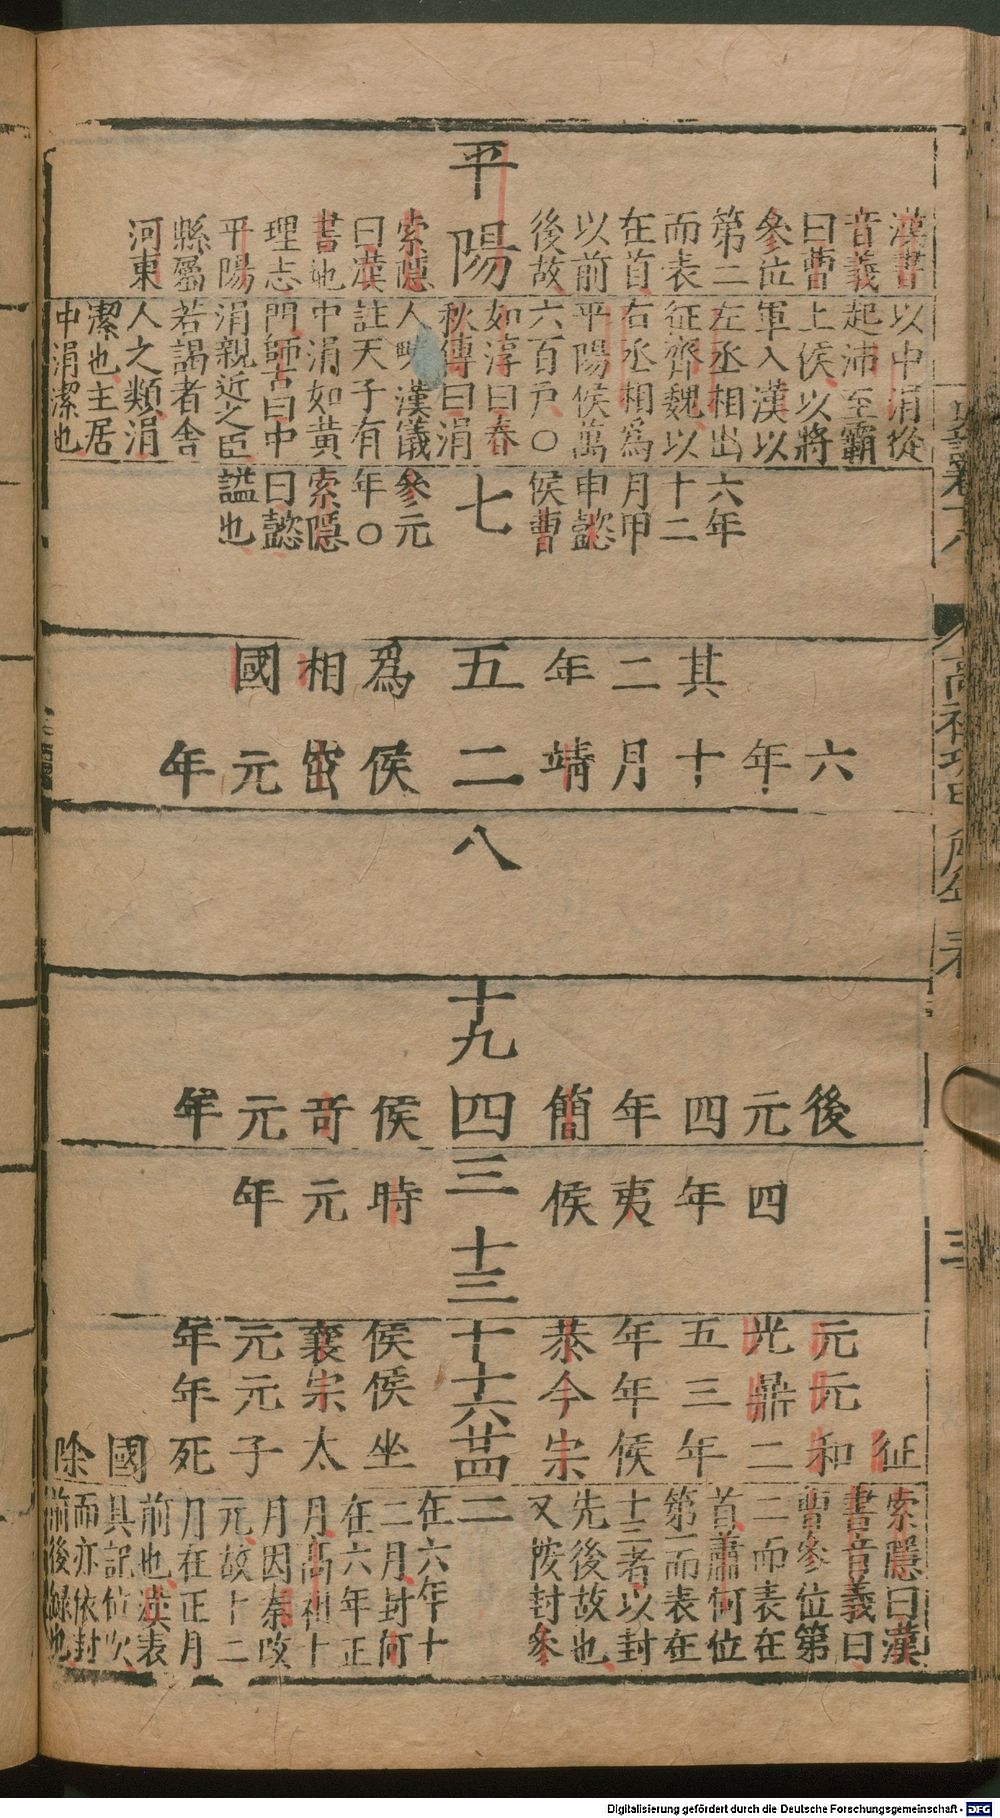 漢書
音義
曰曹
參位
第二
而表
在首
以前
後故
平陽
索隱
曰漢
書地
理志
平陽
縣屬
河東
以中涓從
起沛至霸
上侯以將
軍入漢以
左丞相出
征齊魏以
右丞相爲
平陽侯萬
六百戶〇
如淳曰春
秋傳曰涓
人漢儀
註天子有
中涓如黄
門師古曰中
涓親近之臣
若謁者舍
人之類涓
潔也主居
中涓潔也
六年
十二
月甲
申懿
侯曹
七
參元
年〇
索隱
曰懿
謚也
其二年五爲相國
六年十月靖二侯窋元年
八
十九
後元四年簡四侯奇元年
四年夷侯三時元年
十三
元光五年恭十侯襄元年
元鼎三年今十六侯宗元年
征和二年侯宗廿四坐太子死國除
索隱曰漢
書音義曰
曹參位第
二而表在
首蕭何位
第一而表在
十三者以封
先後故也
又按封參
二
在六年十
二月封何
在六年正
月高祖十
月因秦改
元故十二
月在正月
前也漢表
具記位次
而亦依封
前後錄也
史記卷十八
高祖功臣侯年表
三
Digitalisierung gefördert durch die Deutsche Forschungsgemeinschaft - DFG